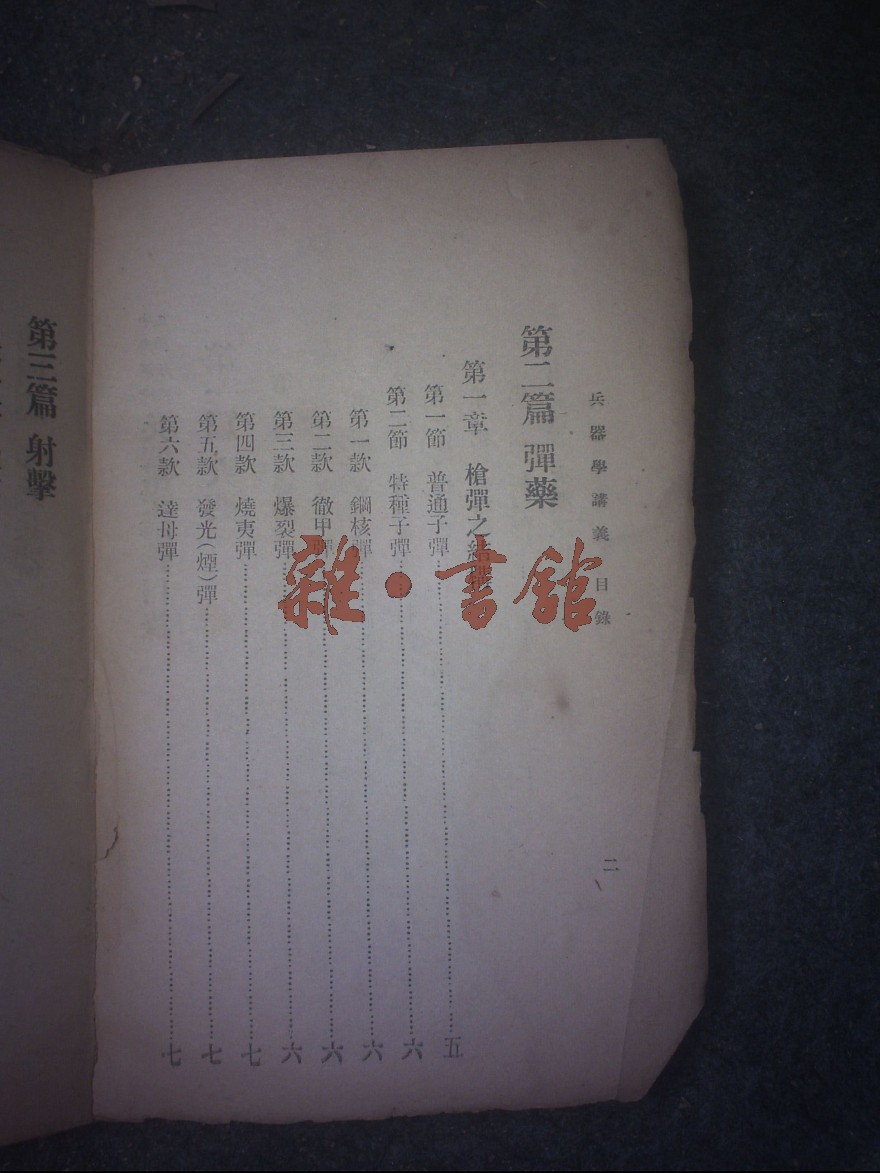 兵器學講義 目錄
二
第二篇 彈藥
第一章 槍彈之
第一節 普通子彈……五
第二節 特種子彈……六
第一款 鋼核彈……六
第二款 徹甲彈……六
第三款 爆裂彈……六
第四款 燒夷彈……七
第五款 發光(煙)彈……七
第六款 達姆彈……七
第三篇 射擊
雜·書館